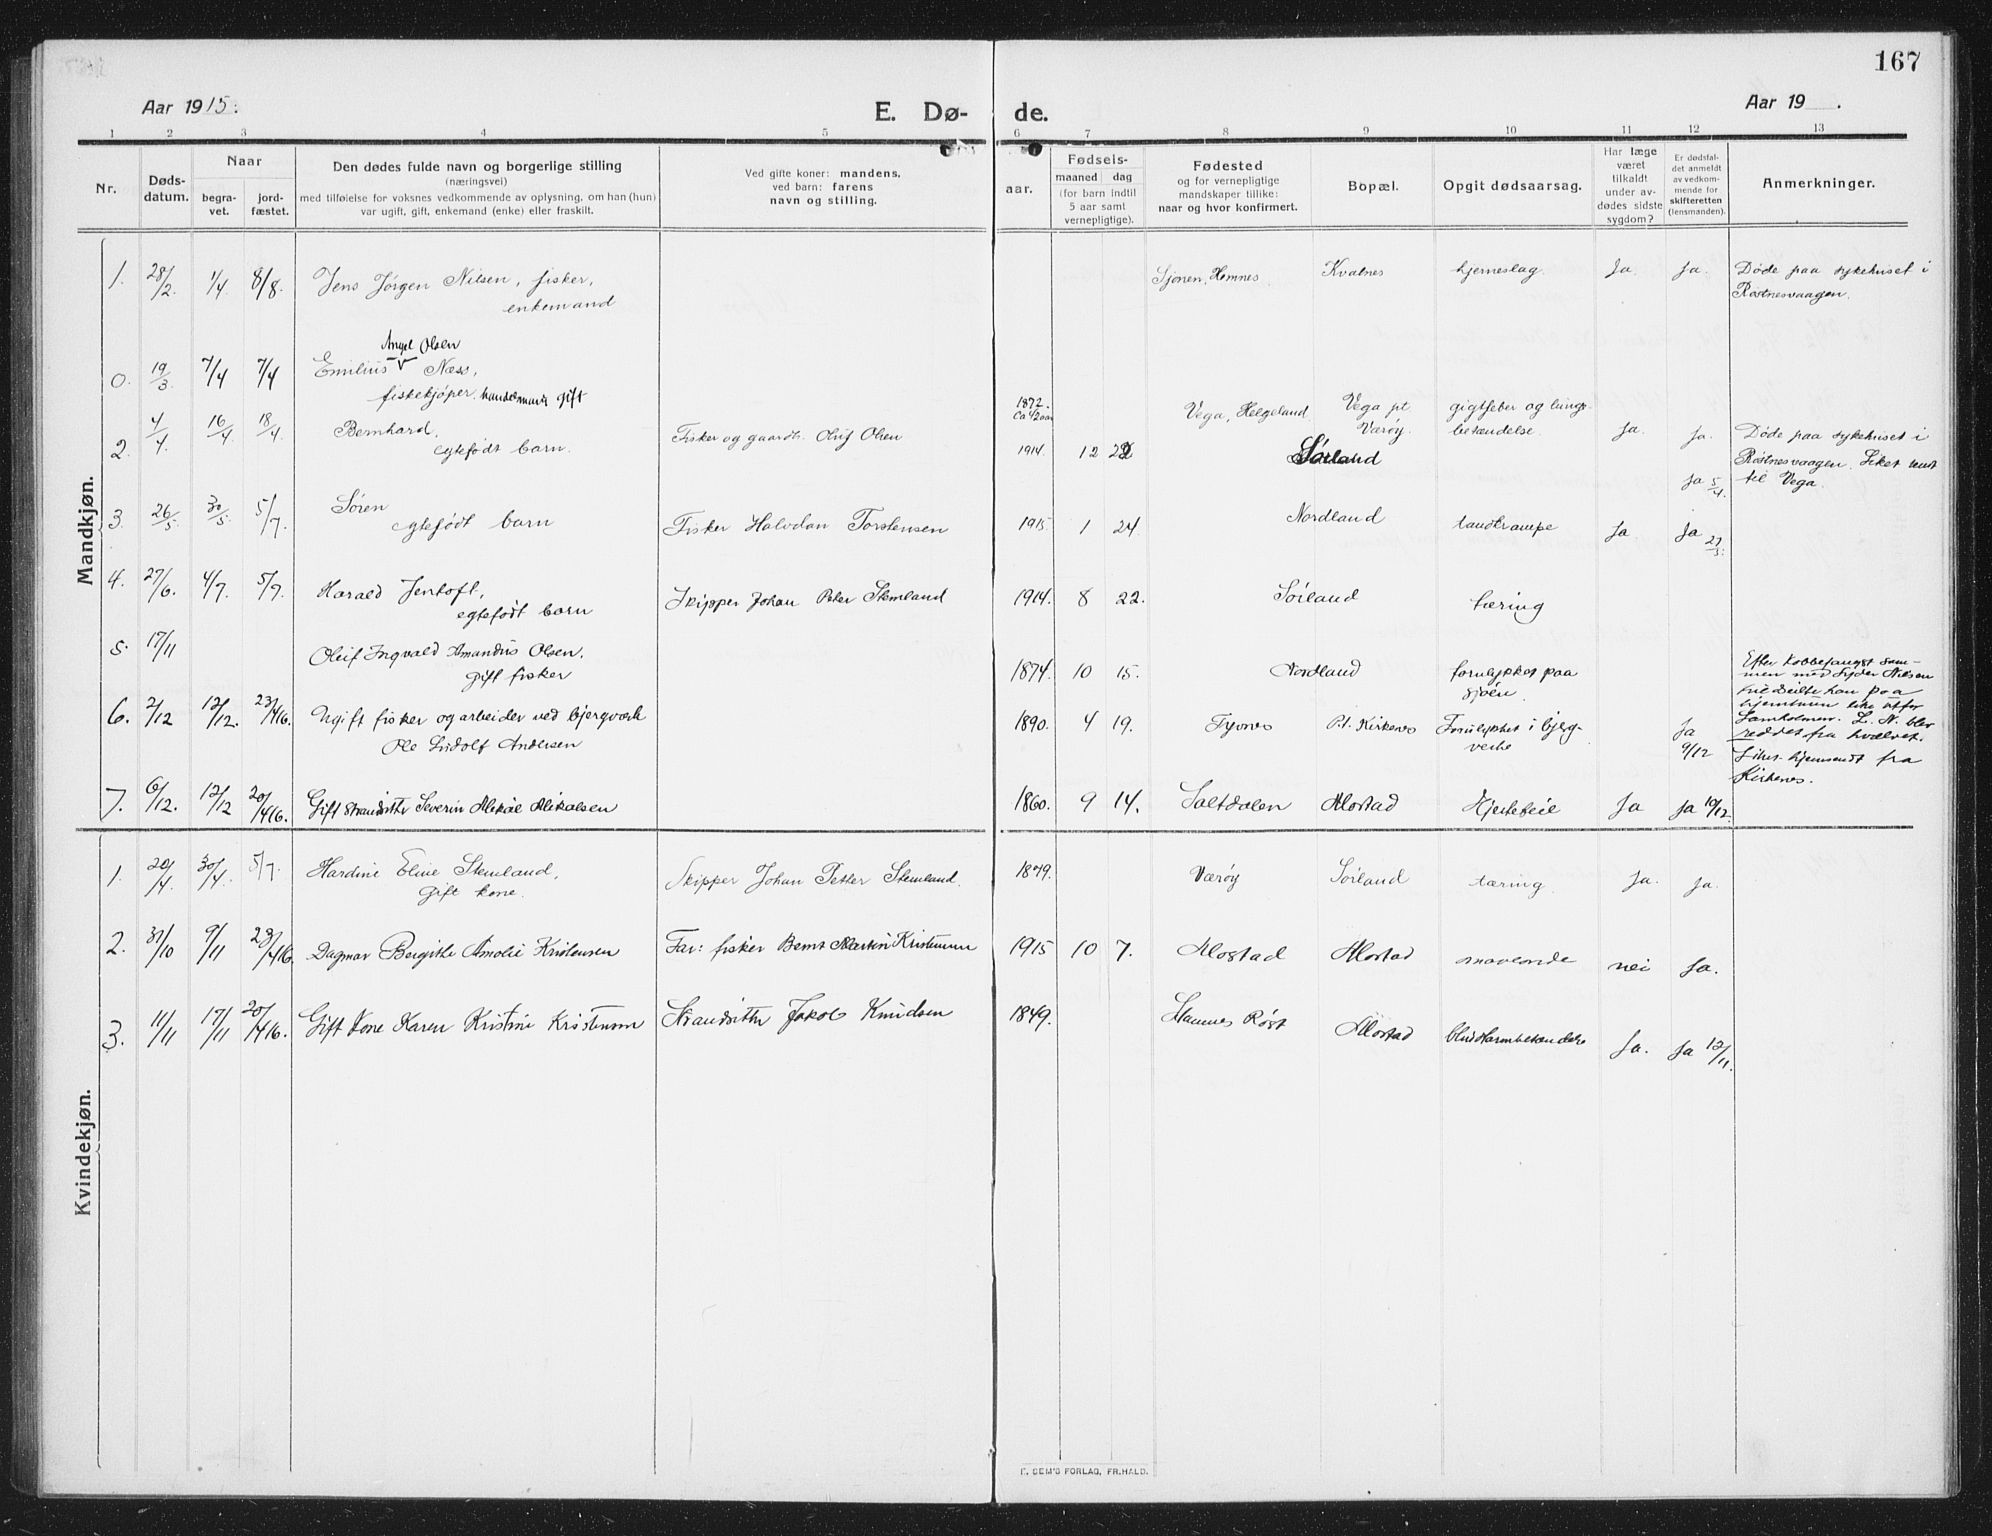 167
Aar 1915.
E. Dø-
de.
Aar 19 .
1 2 3 4 5 6 7 8 9 10 11 12 13
Nr.
Døds-
datum.
Naar
begra-
vet.
jord-
fæstet.
Den dødes fulde navn og borgerlige stilling
(næringsvei)
med tilføielse for voksnes vedkommende av oplysning, om han (hun)
var ugift, gift, enkemand (enke) eller fraskilt.
Ved gifte koner: mandens,
ved barn: farens
navn og stilling.
aar.
Fødsels-
maaned dag
(for barn indtil
5 aar samt
vernepligtige).
Fødested
og for vernepligtige
mandskaper tillike:
naar og hvor konfirmert.
Bopæl.
Opgit dødsaarsag.
Har læge
været
tilkaldt
under av-
dødes sidste
sygdom?
Er dødsfal-
det anmeldt
av vedkom-
mende for
skifteretten
(lensmanden).
Anmerkninger.
Mandkjøn.
1. 28/2. 1/4 8/8. Jens Jørgen Nilsen, fisker,
enkemand
Sjonen, Hemnes Kvalnes hjerneslag Ja. Ja. Døde paa sykehuset i
Røstnesvaagen.
Angel Olsen
0. 19/3. 7/4 7/4 Emilius Næss,
fiskekjøper. handelsmand gift
1872. Vega, Helgeland Vega pt. Værøy. gigtfeber og lunge-
betændelse. Ja. Ja. Døde paa sykehuset i
Røstnesvaagen. Liket sendt
til Vega.
Ja 5/4.
2. 4/4. 16/4 18/4. Bernhard,
egtefødt barn.
Fisker og gaardb. Oluf Olsen
Ca 1/2 aar
1914. 12 Sørland
3. 26/5. 30/5. 5/7. Søren
egtefødt barn
Fisker Halvdan Torstensen 1915. 1 24. Nordland tandkrampe Ja. Ja 27/5.
4. 27/6. 4/7. 5/7. Harald Jentoft,
egtefødt barn
Skipper Johan Peter Stemland 1914. 8 22. Sørland tæring
5. 17/11 Oluf Ingvald Amandus Olsen.
gift fisker
1874. 10 15. Nordland forulykket paa
sjøen.
Efter kobbefangst sam-
men med Nilsen
han paa
L. N. blev
reddet fra hvælvet.
6. 2/12 12/12. 23/4 16. Ugift fisker og arbeider ved bjergverk
Ole Ludolf Andersen
1890. 4 19. Tyvnes P.t. Kirkenes Forulykket i bjerg-
verke Ja
9/12 Liket hjemsendt fra
Kirkenes.
7. 6/12. 12/12 20/4 16. Gift strandsitter Severin Mikal Mikalsen 1860. 9 14. Saltdalen Mostad Hjertefeil Ja Ja 10/12.
Kvindekjøn.
1. 20/4. 30/4. 5/7. Hardine Eline Stemland,
gift kone.
Skipper Johan Petter Stemland. 1879. Værøy Sørland tæring. Ja. Ja.
2. 31/10 9/11 23/4 16. Dagmar Bergithe Amalie Kristensen Far: fisker Bernt Martin Kristensen 1915 10 7. Mostad Mostad maveonde nei Ja.
3. 11/11 17/11 20/4 16. Gift Kone Karen Kristine Kristensen Strandsitter Jakob Knudsen 1849. Hannes Røst Mostad blindtarmbetændelse Ja. Ja 12/11.
E. SEM'S FORLAG, FR.HALD.